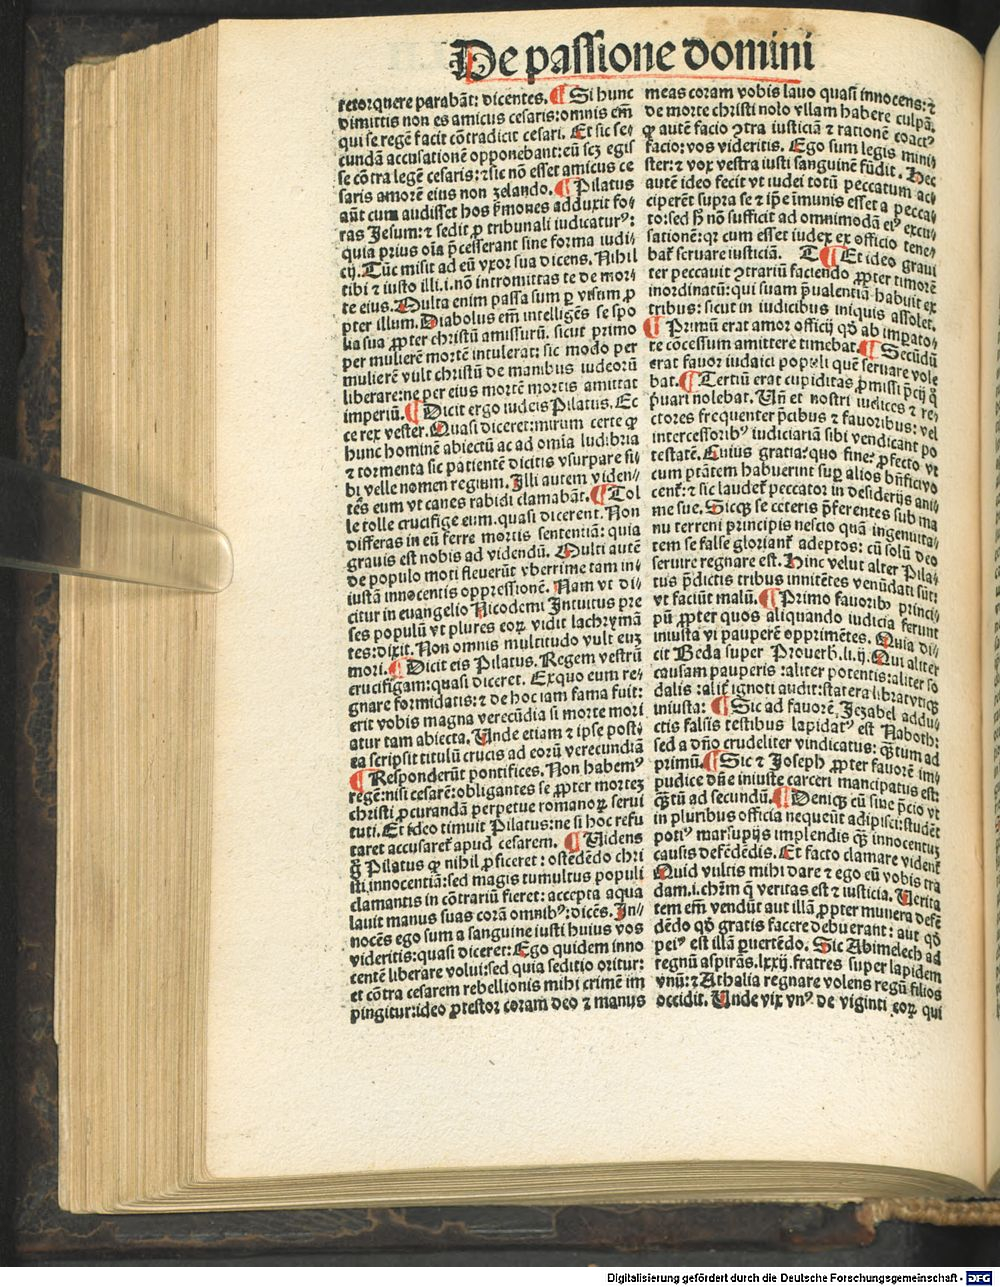 De passione domini
retorquere parabāt: dicentes. ¶ Si hunc
dimittis non es amicus cesaris: omnis em̄
qui se regē facit cōtradicit cesari. Et sic se-
cundā accusationē opponebant: eū scȝ egis
se cōtra legē cesaris: ⁊ sic nō esset amicus ce
saris amorē eius non zelando. ¶ Pilatus
aūt cum audisset hos ẜmones adduxit fo-
ras Jesum: ⁊ sedit ꝓ tribunali iudicaturꝰ:
quia prius oīa p̄cesserant sine forma iudi-
cij. Tūc misit ad eū vxor sua dicens. Nihil
tibi ⁊ iusto illi. i. nō intromittas te de mor-
te eius. Multa enim passa sum ꝑ visum ꝓ
pter illum. Diabolus em̄ intelligēs se spo
lia sua ꝓpter christū amissurū. sicut primo
per mulierē mortē intulerat: sic modo per
mulierē vult christū de manibus iudeorū
liberare: ne per eius mortē mortis amittat
imperiū. ¶ Dicit ergo iudeis Pilatus. Ec
ce rex vester. Quasi diceret: mirum certe ꝙ
hunc hominē abiectū ac ad omīa ludibria
⁊ tormenta sic patientē dicitis vsurpare si-
bi velle nomen regium. Illi autem viden-
tēs eum vt canes rabidi clamabāt. ¶ Tol
le tolle crucifige eum. quasi dicerent. Non
differas in eū ferre mortis sententiā: quia
grauis est nobis ad videndū. Multi autē
de populo moti fleuerūt vberrime tam in-
iustā innocentis oppressionē. Nam vt di-
citur in euangelio Nicodemi Intuitus pre
ses populū vt plures eoꝝ vidit lachrymā
tes: dixit. Non omnis multitudo vult euȝ
mori. ¶ Dicit eis Pilatus. Regem vestrū
crucifigam: quasi diceret. Exquo eum re-
gnare formidatis: ⁊ de hoc iam fama fuit:
erit vobis magna verecūdia si morte mori
atur tam abiecta. Unde etiam ⁊ ipse post-
ea scripsit titulū crucis ad eorū verecundiā
¶ Responderūt pontifices. Non habemꝰ
regē: nisi cesarē: obligantes se ꝓpter morteȝ
christi ꝓcurandā perpetue romanoꝝ serui
tuti. Et ideo timuit Pilatus: ne si hoc refu
taret accusaretᷣ apud cesarem. ¶ Videns
Pilatus ꝙ nihil ꝓficeret: ostēdēdo chri
sti innocentiā: sed magis tumultus populi
clamantis in cōtrariū fieret: accepta aqua
lauit manus suas corā omnibꝰ: dicēs. In-
nocēs ego sum a sanguine iusti huius vos
videritis: quasi diceret: Ego quidem inno
centē liberare volui: sed quia seditio oritur:
et cōtra cesarem rebellionis mihi crimē im
pingitur: ideo ꝓtestor coram deo ⁊ manus
meas coram vobis lauo quasi innocens: ⁊
de morte christi nolo vllam habere culpā.
ꝙ autē facio ꝯtra iusticiā ⁊ rationē coactꝰ
facio: vos videritis. Ego sum legis mini-
ster: ⁊ vox vestra iusti sanguinē fūdit. Hec
autē ideo fecit vt iudei totū peccatum ac-
ciperēt supra se ⁊ ip̄e īmunis esset a pecca-
to: sed h̄ nō sufficit ad omnimodā eiꝰ excu-
sationē: qꝛ cum esset iudex ex officio tene-
batᷣ seruare iusticiā. T ¶ Et ideo graui
ter peccauit ꝯtrariū faciendo ꝓpter timorē
inordinatū: qui suam p̄ualentiā habuit ex
tribus: sicut in iudicibus iniquis assolet.
¶ Primū erat amor officij qđ ab impato-
re cōcessum amittere timebat. ¶ Secūdū
erat fauor iudaici popℓi quē seruare vole
bat. ¶ Tertiū erat cupiditas ꝓmissi p̄cij q̄
p̄uari nolebat. Un̄ et nostri iudices ⁊ re-
ctores frequenter p̄cibus ⁊ fauoribus: vel
intercessoribꝰ iudiciariā sibi vendicant po
testatē. Cuius gratia: quo fine: ꝓfecto vt
cum ptātem habuerint suꝑ alios bn̄ficivo
centᷣ: ⁊ sic laudetᷣ peccator in desiderijs ani
me sue. Sicqꝫ se ceteris p̄ferentes sub ma
nu terreni principis nescio quā ingenuita-
tem se false gloriantᷣ adeptos: cū solū deo
seruire regnare est. Hinc velut alter Pila-
tus p̄dictis tribus innitētes venūdati sūt:
vt faciūt malū. ¶ Primo fauoribꝰ princi-
pū ꝓpter quos aliquando iudicia ferunt
iniusta vi pauperē opprimētes. Quia di-
cit Beda super Prouerb. li. ij. Qui aliter
causam pauperis: aliter potentis: aliter so
dalis: alitᷣ ignoti audit: statera libratvtiqꝫ
iniusta: ¶ Sic ad fauorē Jezabel addu-
ctis falsis testibus lapidatꝰ est Naboth:
sed a dn̄o crudeliter vindicatus: q̄ꝫtum ad
primū. ¶ Sic ⁊ Joseph ꝓpter fauorē im-
pudice dn̄e iniuste carceri mancipatus est:
q̄ꝫtū ad secundū. ¶ Deniqꝫ cū sine p̄cio vt
in pluribus officia nequeūt adipisci: studēt
potiꝰ marsupijs implendis q̄ꝫ innocentuȝ
causis defēdēdis. Et facto clamare videntᷣ
Quid vultis mihi dare ⁊ ego eū vobis tra
dam. i. chr̄m q̄ veritas est ⁊ iusticia. Verita
tem em̄ vendūt aut illā ꝓpter munera defē
dēdo qđ gratis facere debuerant: aut qđ
peiꝰ est illā ꝑuertēdo. Sic Abimelech ad
regnū aspirās. lxxij. fratres super lapidem
vnū: ⁊ Athalia regnare volens regū filios
occidit. Unde vix vnꝰ de viginti eoꝝ qui
Digitalisierung gefördert durch die Deutsche Forschungsgemeinschaft - DFG